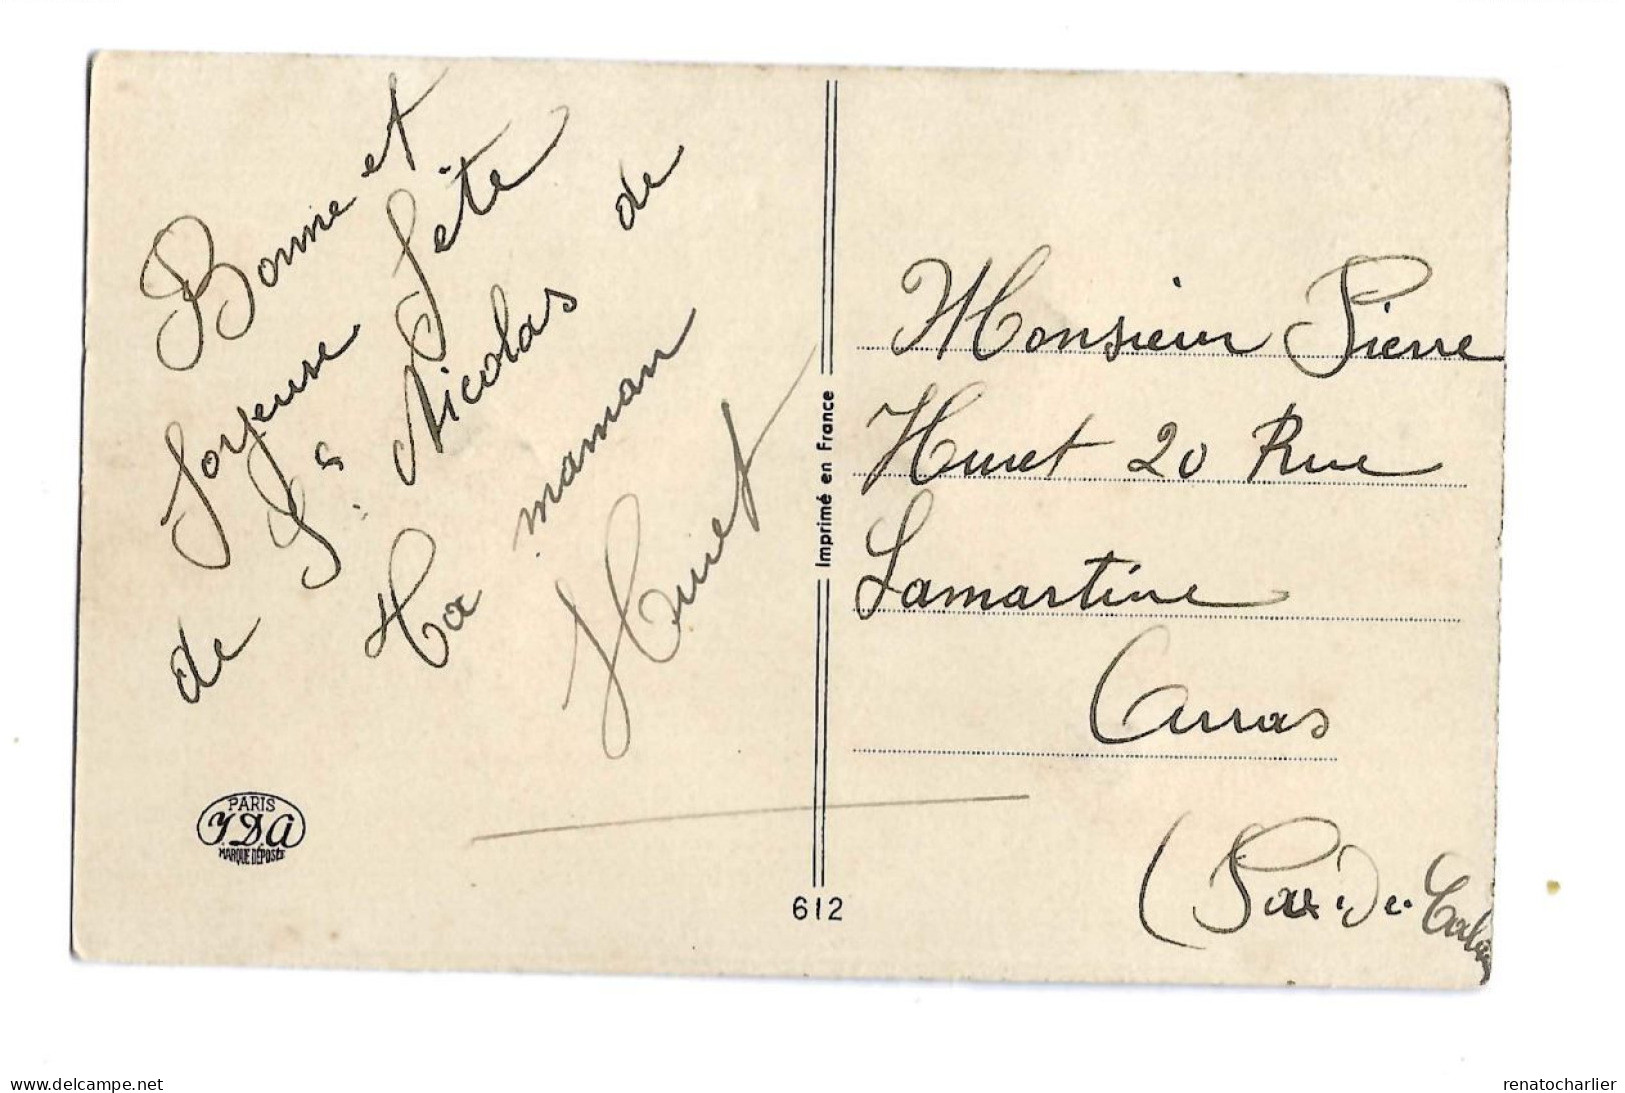 Bonne et
Joyeuse fête
de St. Nicolas de
Ta maman
Huret
PARIS
J.D.A
MARQUE DÉPOSÉE
Imprimé en France
612
Monsieur Pierre
Huret 20 Rue
Lamartine
Arras
(Pas-de-Calais
delcampe.net
renatocharlier